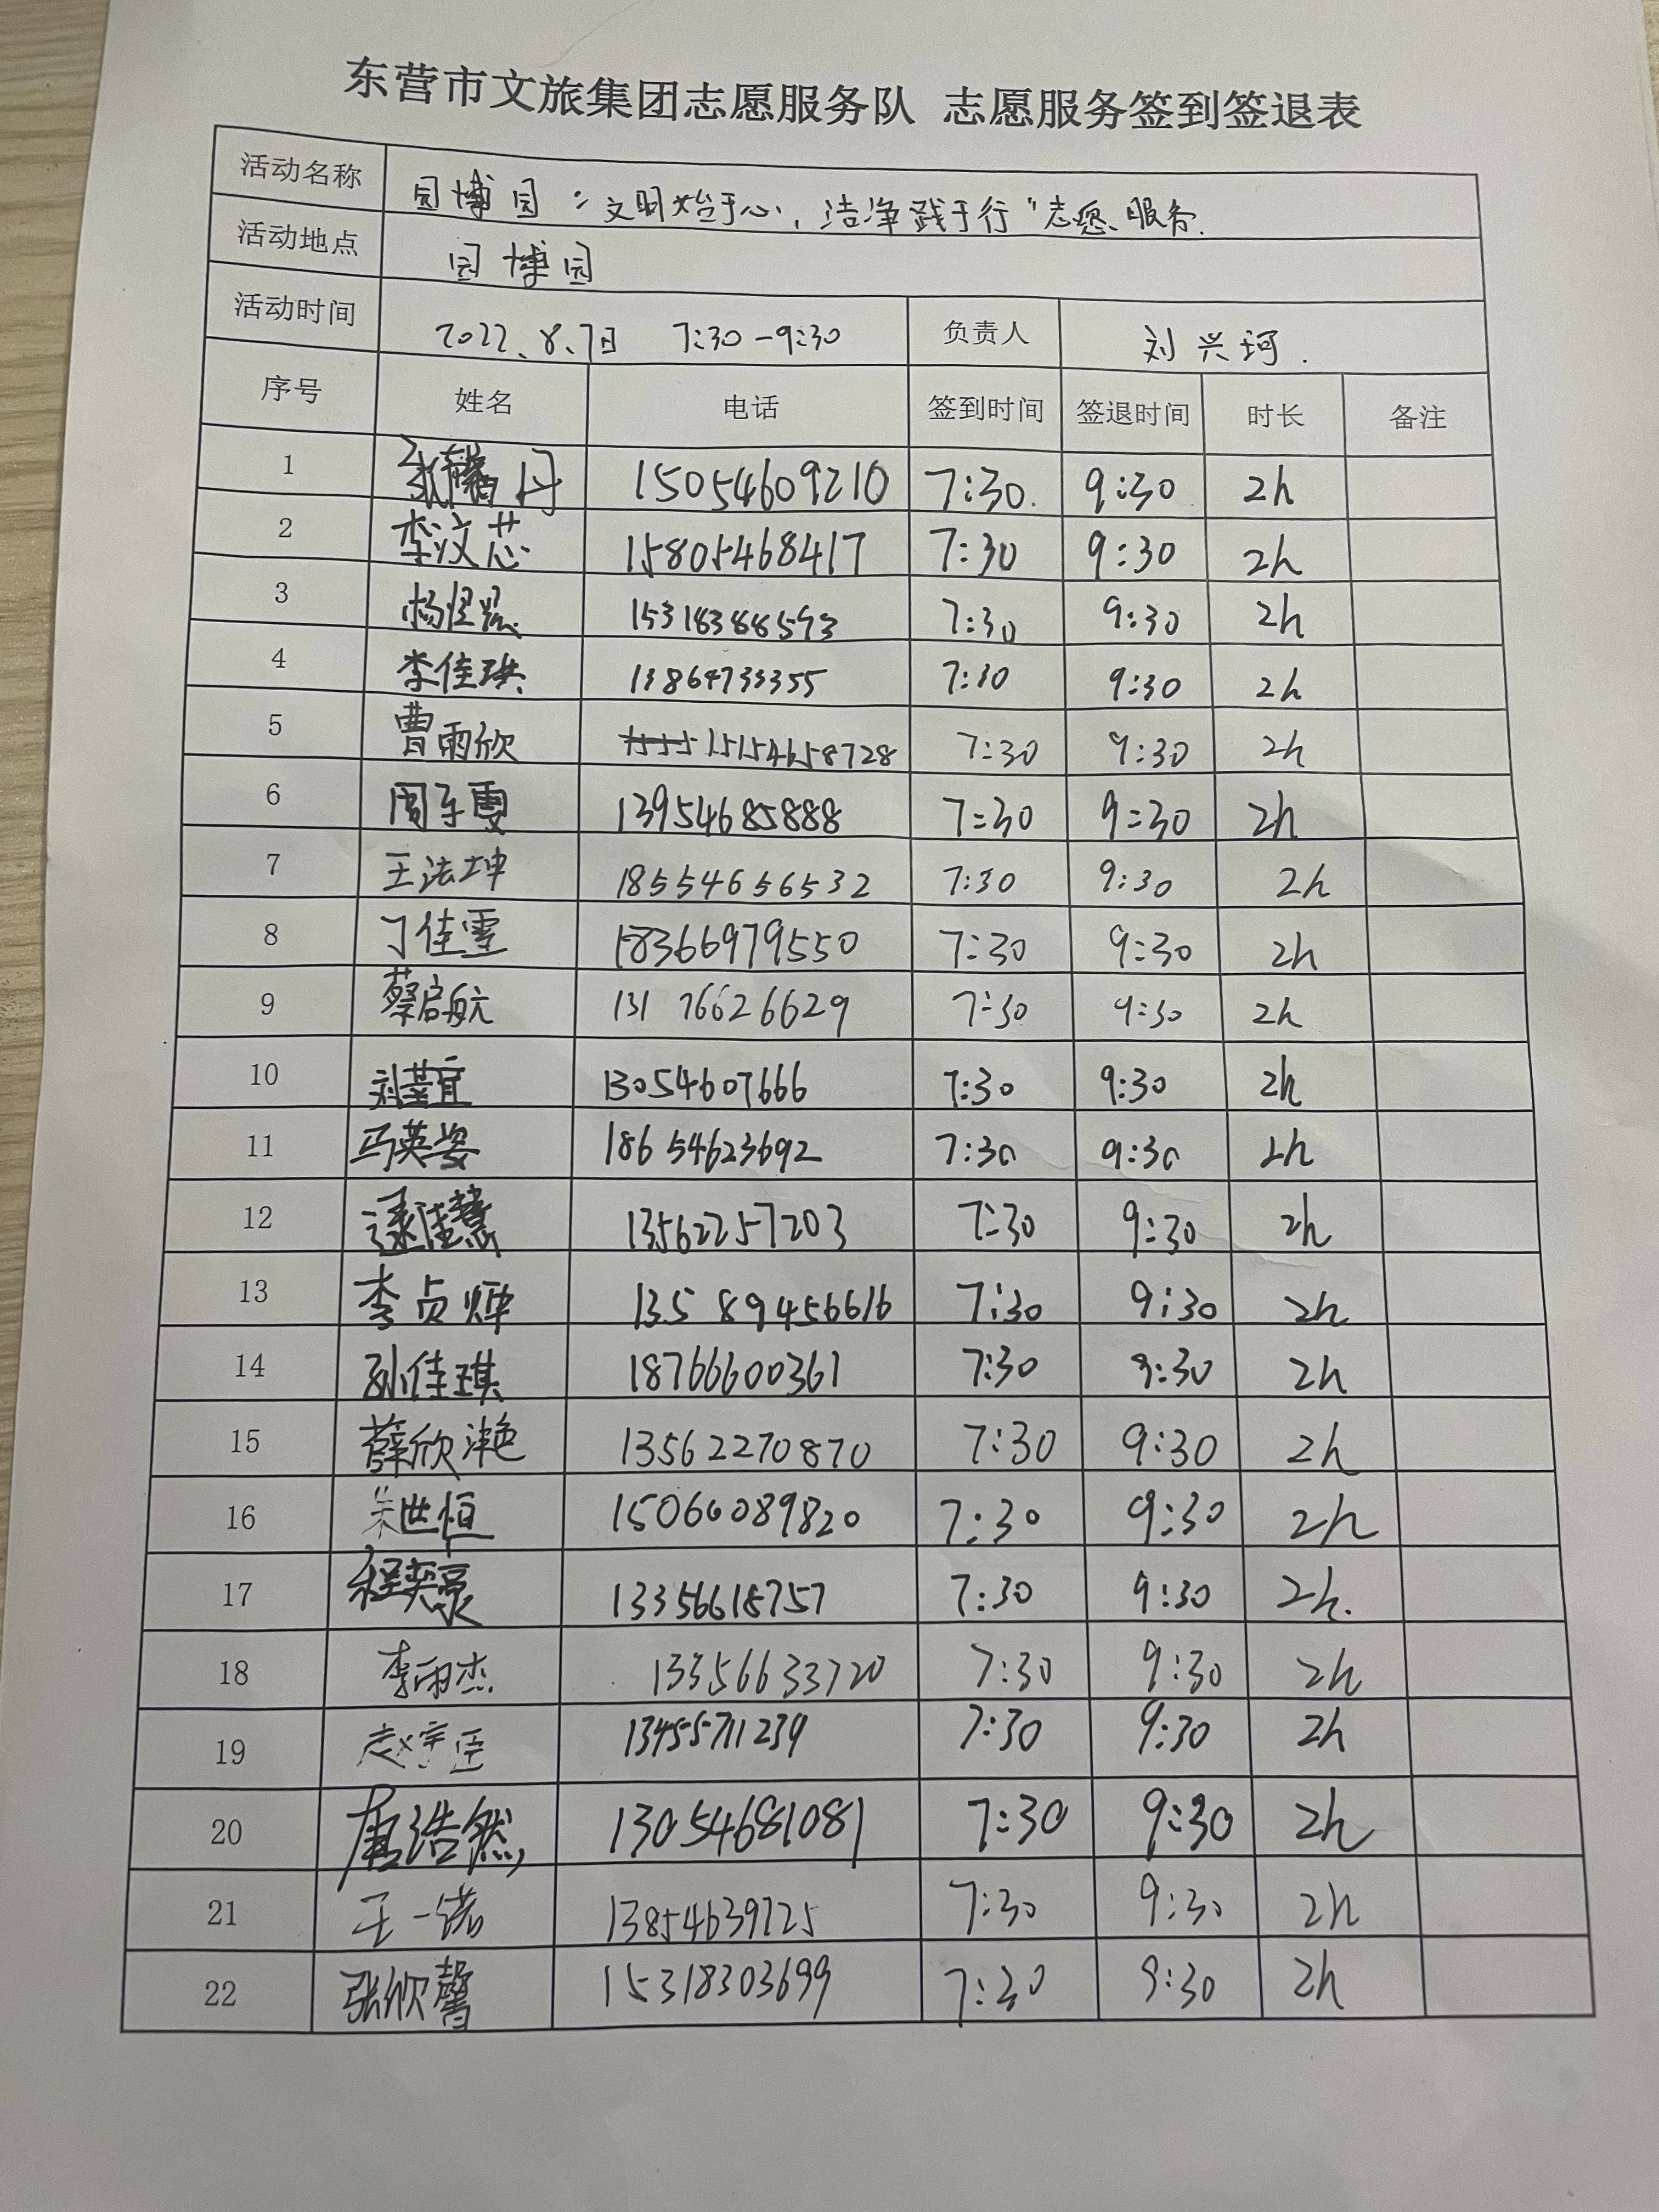 东营市文旅集团志愿服务队 志愿服务签到签退表
活动名称 园博园"文明始于心,洁净践于行"志愿服务.
活动地点 园博园
活动时间 2022.8.7日 7:30-9:30 负责人 刘兴珂.
序号 姓名 电话 签到时间 签退时间 时长 备注
1 15054609210 7:30. 9:30 2h
2 李汶芯 15805468417 7:30 9:30 2h
3 15318388593 7:30 9:30 2h
4 李佳琪 13864733355 7:30 9:30 2h
5 曹雨欣 15154658728 7:30 9:30 2h
6 周子雯 13954685888 7:30 9:30 2h
7 王法坤 18554656532 7:30 9:30 2h
8 丁佳雪 18366979550 7:30 9:30 2h
9 蔡启航 131 76626629 7:30 9:30 2h
10 13054607666 7:30 9:30 2h
11 马英姿 186 54623692 7:30 9:30 2h
12 逯佳慧 13562257203 7:30 9:30 2h
13 李贞烨 135 89456616 7:30 9:30 2h
14 孙佳琪 18766600361 7:30 9:30 2h
15 薛欣滟 13562270870 7:30 9:30 2h
16 朱世恒 15066089820 7:30 9:30 2h
17 程奕豪 13356618757 7:30 9:30 2h.
18 李雨杰 13356633720 7:30 9:30 2h
19 13455711239 7:30 9:30 2h
20 唐浩然 13054681081 7:30 9:30 2h
21 王一诺 13854639725 7:30 9:30 2h
22 张欣馨 15318303699 7:30 9:30 2h